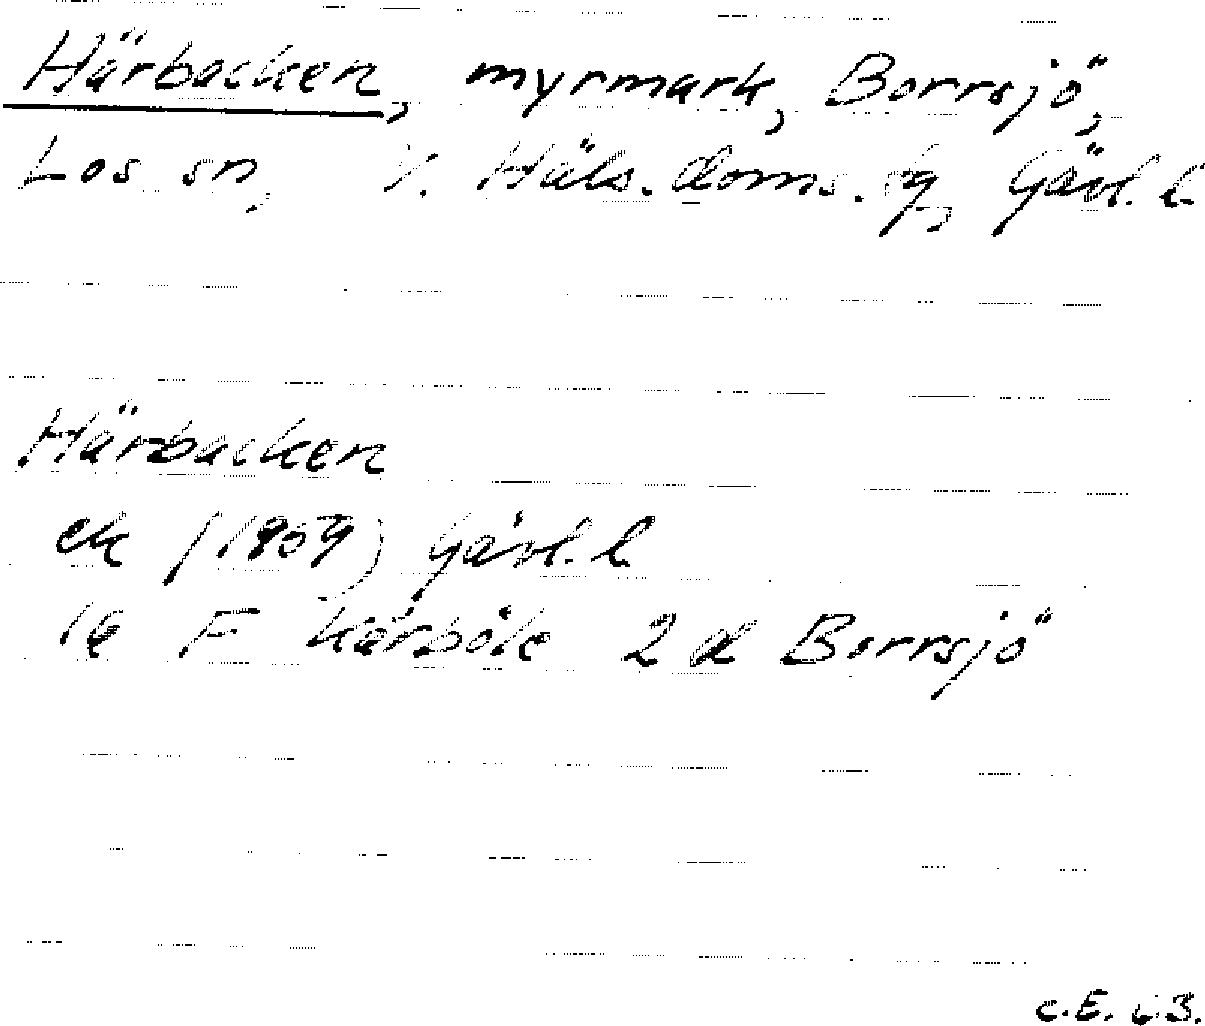 Härbacken, myrmark, Borrsjö,
Los sn, V. Häls. doms. Gävl. l.
Härbacken
ek (1959) Gävl. l.
F Kårböle 2 d Borrsjö
C.E. 63.